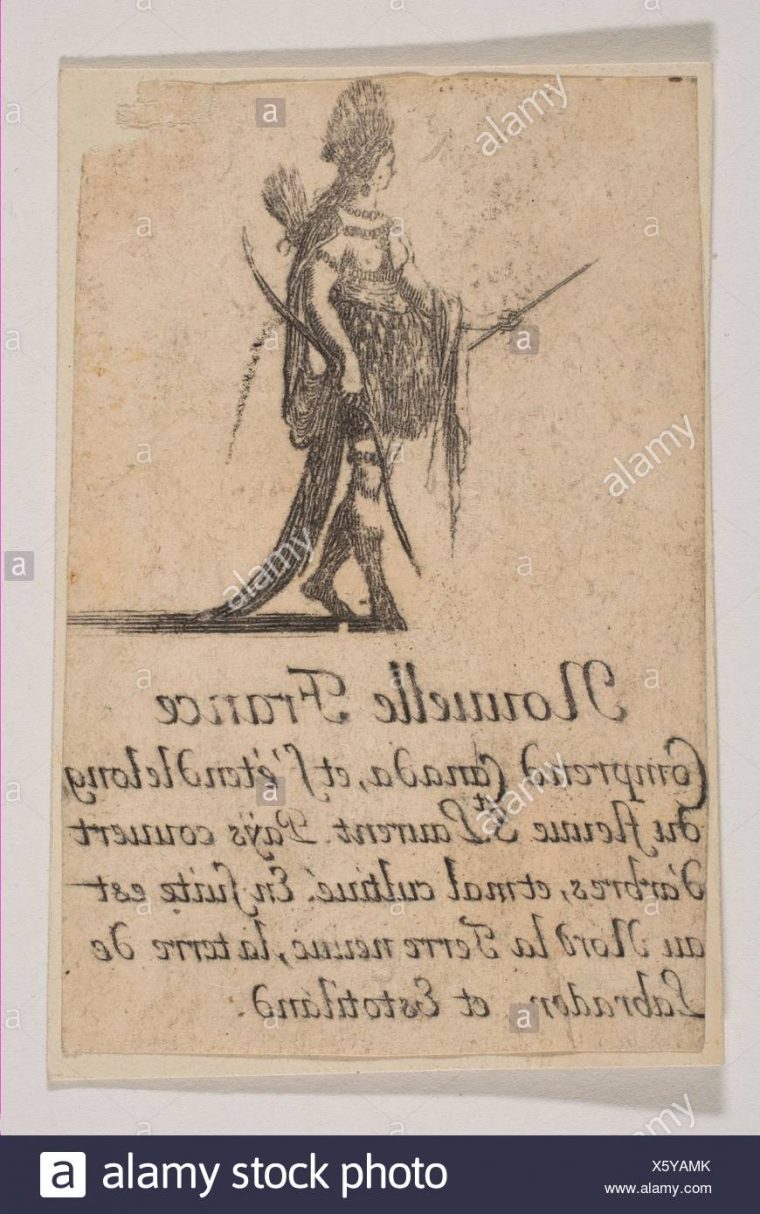 a
alamy
Nouuelle France
Comprend Canada, et s'étend le long
du fleuue S.t Laurent. Païs couuert
d'arbres, et mal cultiué. En suite est
au Nord la Terre neuue, la terre de
Labrador, et Estotiland.
a alamy stock photo
X5YAMK
www.alamy.com